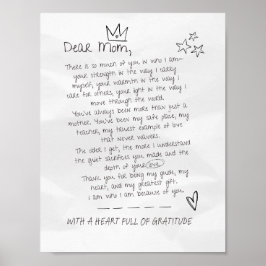 Dear Mom,
There is so much of you in who I am-
your strength in the way I carry
myself, your warmth in the way I
care for others, your light in the way I
move through the world.
You've always been more than just a
mother. You've been my safe place, my
teacher, my truest example of love
that never wavers.
The older I get, the more I understand
the quiet sacrifices you made and the
depth of your love.
Thank you for being my guide, my
heart, and my greatest gift.
I am who I am because of you.
WITH A HEART FULL OF GRATITUDE